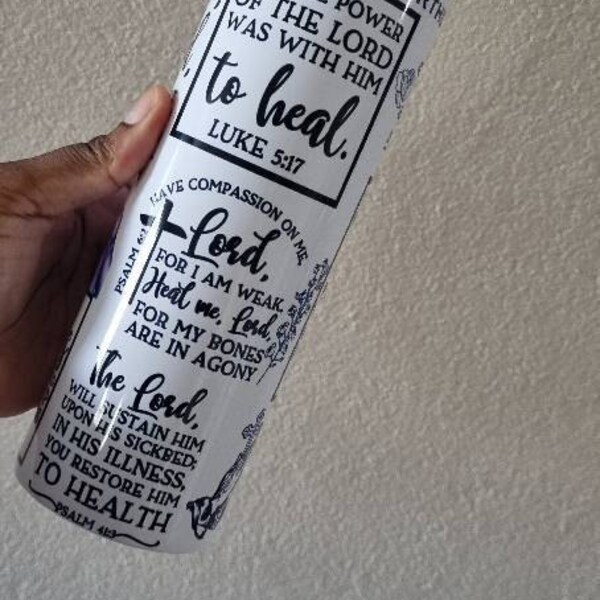 POWER
OF THE LORD
WAS WITH HIM
to heal.
LUKE 5:17
HAVE COMPASSION ON ME,
Lord,
FOR I AM WEAK.
Heal me, Lord,
FOR MY BONES
ARE IN AGONY
PSALM 6:2
The Lord,
WILL SUSTAIN HIM
UPON HIS SICKBED;
IN HIS ILLNESS,
YOU RESTORE HIM
TO HEALTH
PSALM 41:3